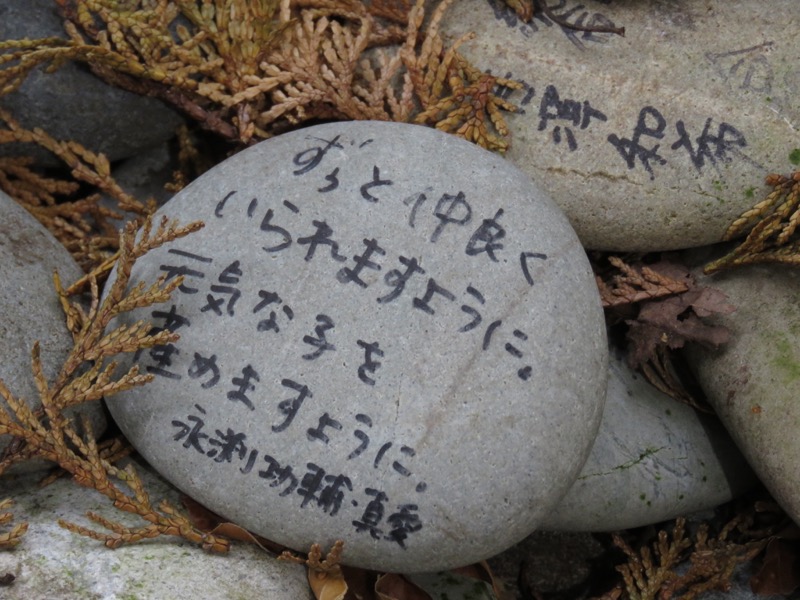 ずっと仲良く
いられますように。
元気な子を
産めますように。
永渕功輔・真愛
澤知希